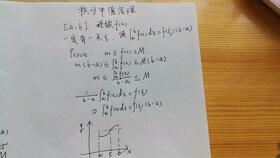 积分中值定理
[a,b] 连续 f(x)
一定有一点ξ, 使 ∫ₐᵇ f(x)dx = f(ξ)(b-a)
Prove: m ≤ f(x) ≤ M
m(b-a) ≤ ∫ₐᵇ f(x)dx ≤ M(b-a)
m ≤ ∫ₐᵇ f(x)dx / (b-a) ≤ M
1/(b-a) ∫ₐᵇ f(x)dx = f(ξ)
⇒ ∫ₐᵇ f(x)dx = f(ξ)(b-a)
y
a ξ b x